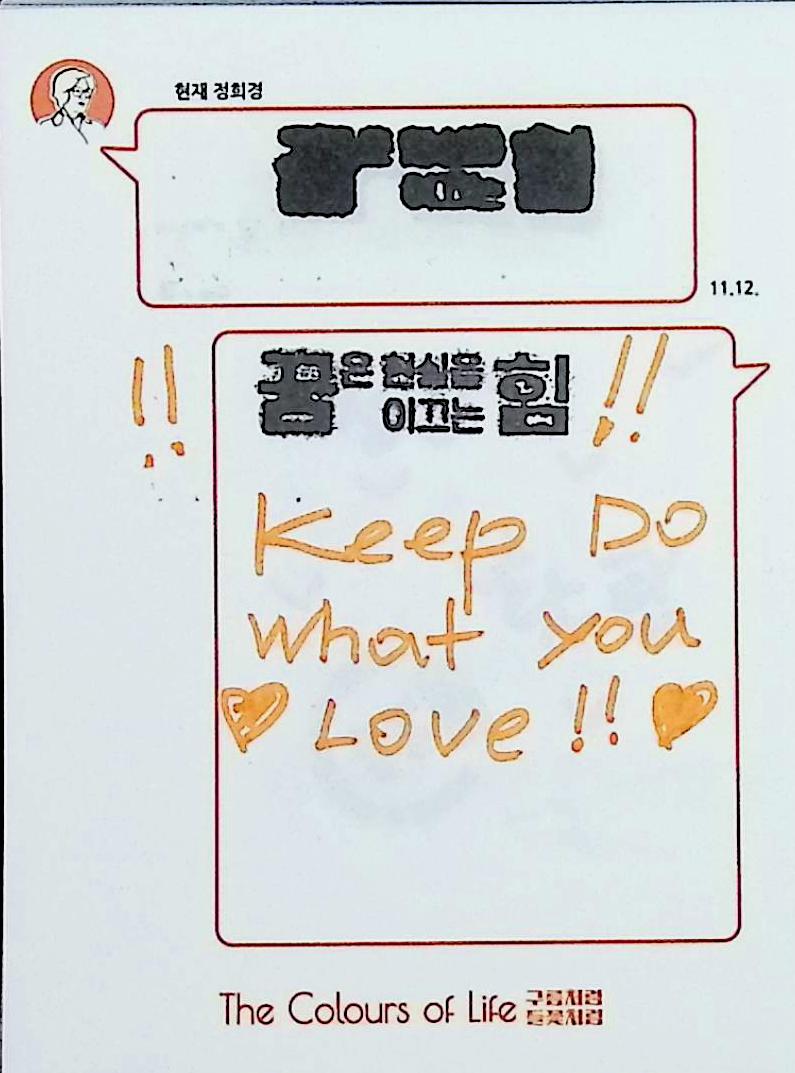 현재 정희경
11.12.
!! 꿈은 현실을 !!
이끄는 힘
Keep Do
what you
Love !!
The Colours of Life 구름처럼
들꽃처럼